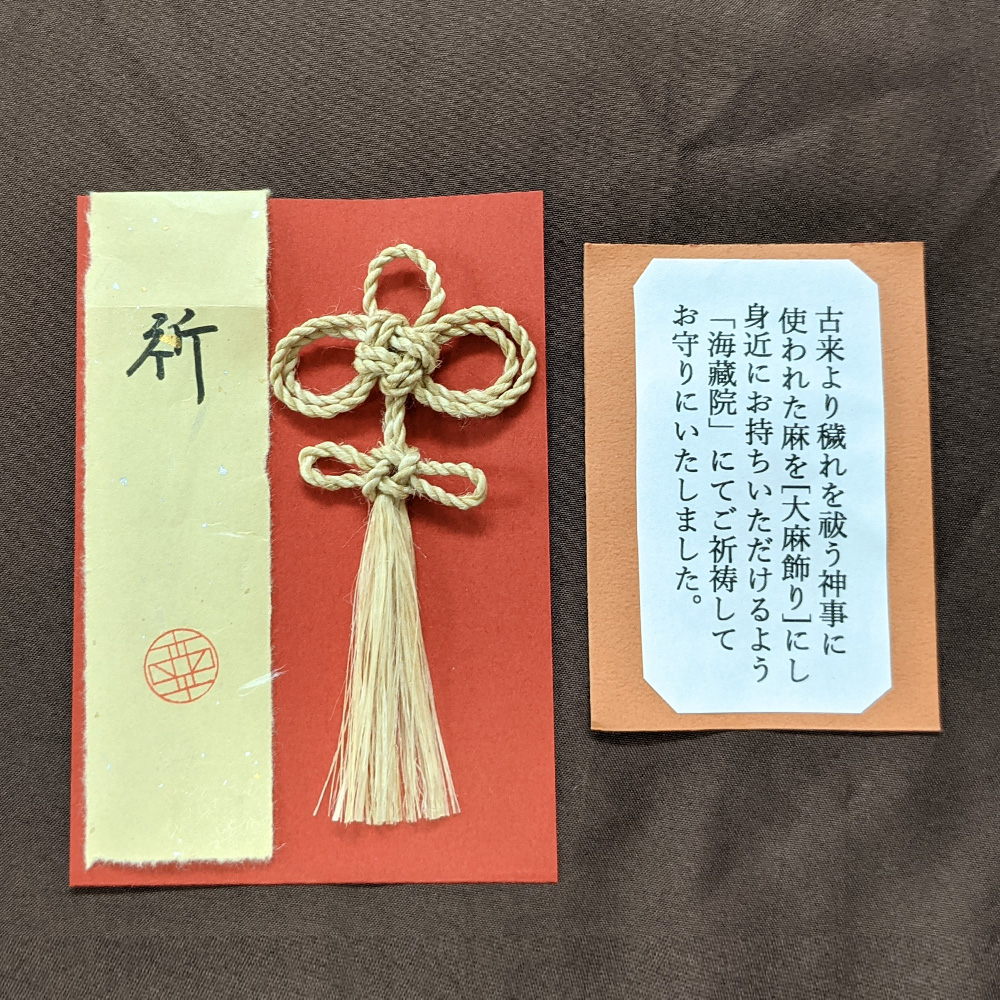 祈
古来より穢れを祓う神事に
使われた麻を[大麻飾り]にし
身近にお持ちいただけるよう
「海藏院」にてご祈祷して
お守りにいたしました。